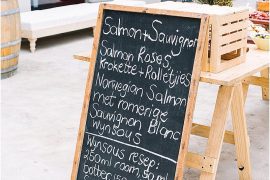 Salmon+Sauvignon
Salmon Roses
Krokette + Rolletjies
Norwegian Salmon
met romerige
Sauvignon Blanc
Wynsous
Wynsous resep:
250ml room 50ml
botter